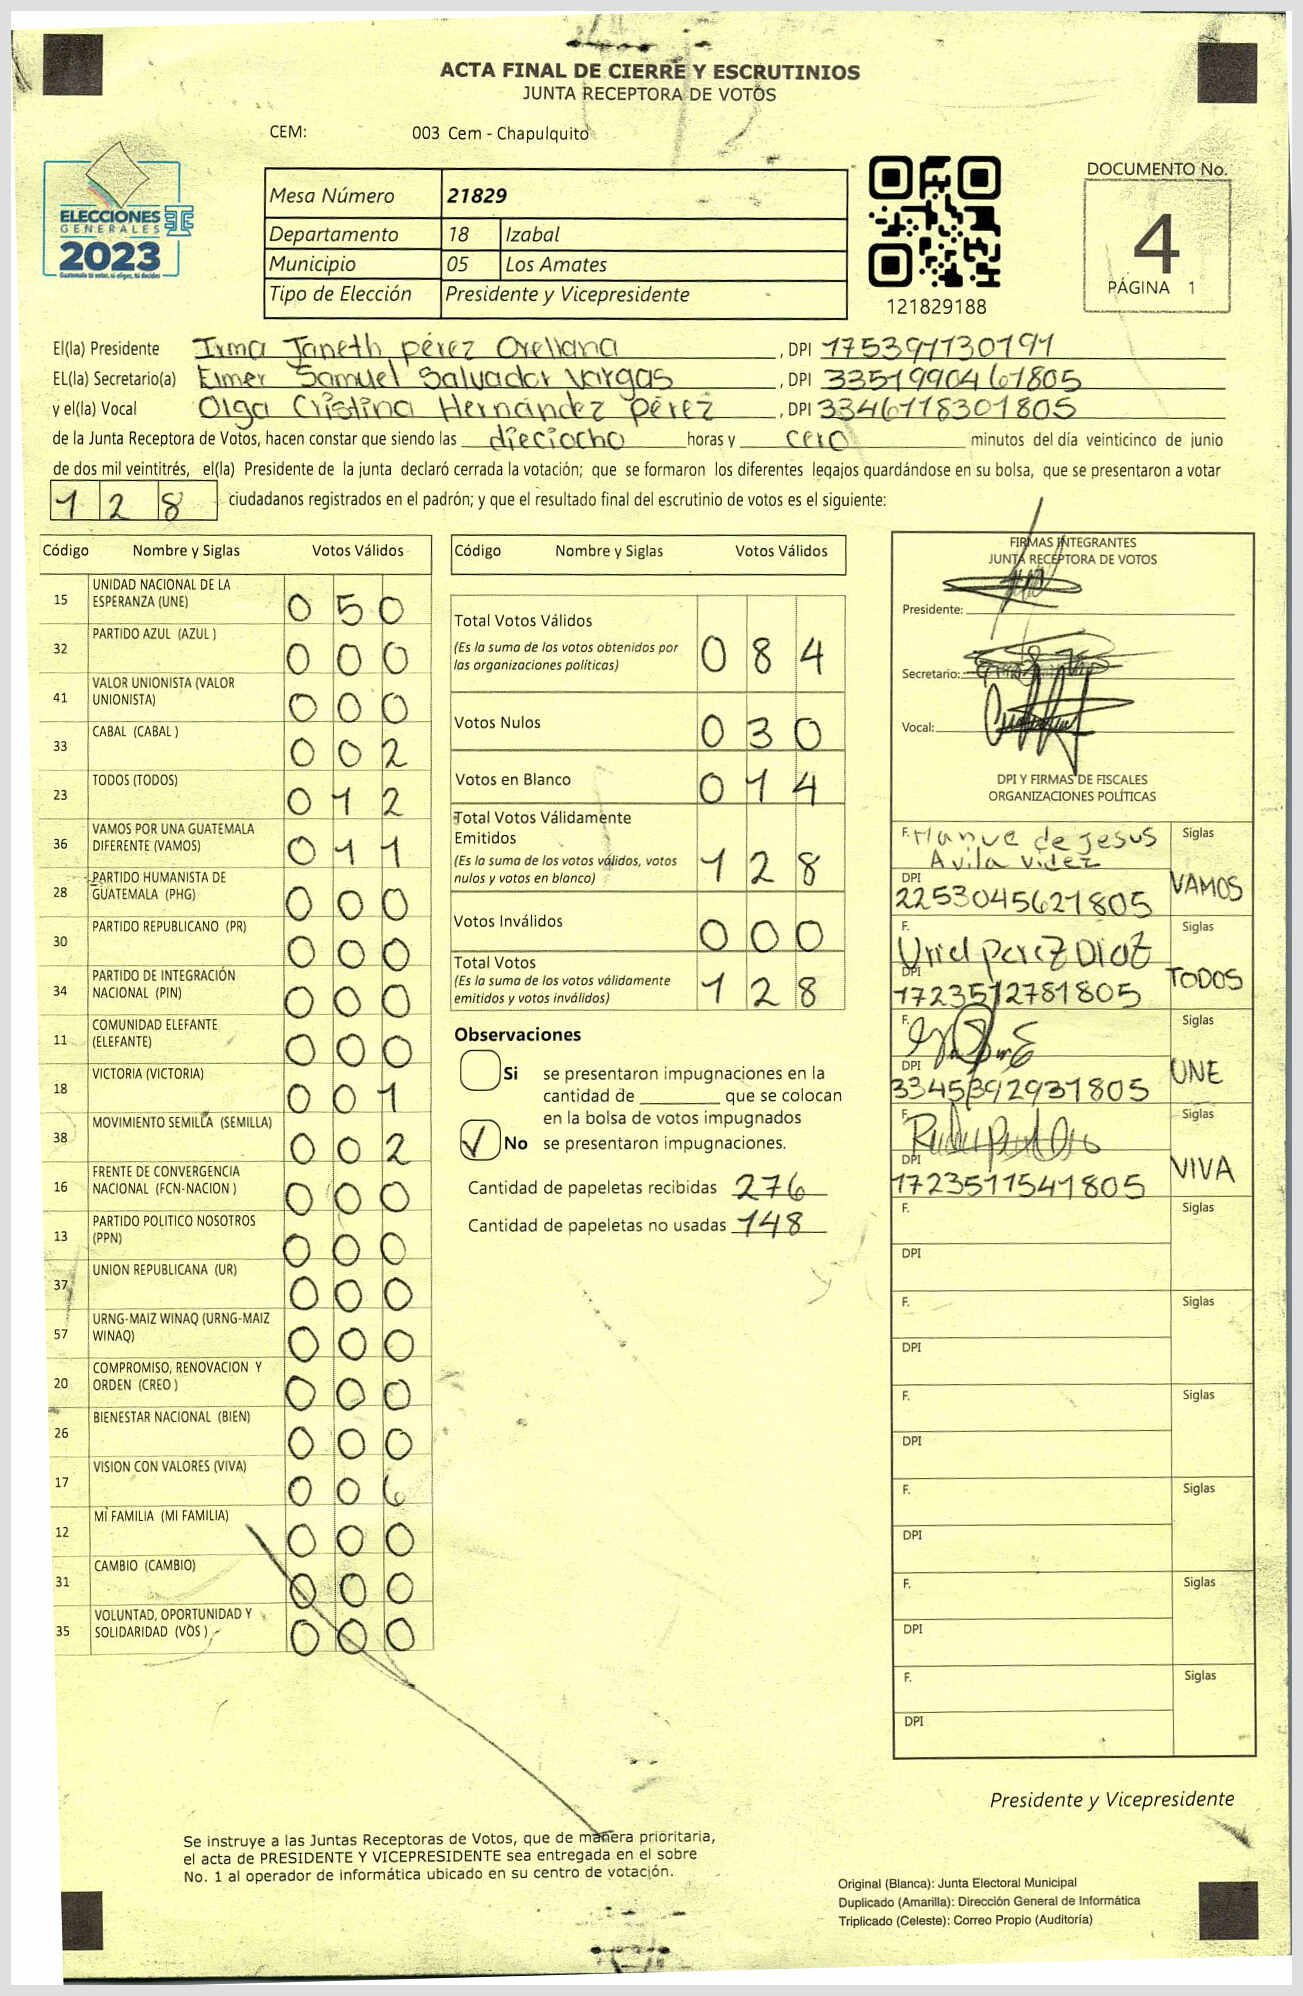 ACTA FINAL DE CIERRE Y ESCRUTINIOS
JUNTA RECEPTORA DE VOTOS
CEM: 003 Cem - Chapulquito
ELECCIONES
GENERALES
2023
Mesa Número 21829
Departamento 18 Izabal
Municipio 05 Los Amates
Tipo de Elección Presidente y Vicepresidente
121829188
DOCUMENTO No.
4
PÁGINA 1
El(la) Presidente Irma Janeth pérez Orellana, DPI 1753911730191
EL(la) Secretario(a) Elmer Samuel Salvador Vargas, DPI 3351990461805
y el(la) Vocal Olga Cristina Hernández pérez, DPI 3346118301805
de la Junta Receptora de Votos, hacen constar que siendo las dieciocho horas y cero minutos del día veinticinco de junio
de dos mil veintitrés, el(la) Presidente de la junta declaró cerrada la votación; que se formaron los diferentes legajos guardándose en su bolsa, que se presentaron a votar
128 ciudadanos registrados en el padrón; y que el resultado final del escrutinio de votos es el siguiente:
Código Nombre y Siglas Votos Válidos
15 UNIDAD NACIONAL DE LA ESPERANZA (UNE) 0 5 0
32 PARTIDO AZUL (AZUL ) 0 0 0
41 VALOR UNIONISTA (VALOR UNIONISTA) 0 0 0
33 CABAL (CABAL ) 0 0 2
23 TODOS (TODOS) 0 1 2
36 VAMOS POR UNA GUATEMALA DIFERENTE (VAMOS) 0 1 1
28 PARTIDO HUMANISTA DE GUATEMALA (PHG) 0 0 0
30 PARTIDO REPUBLICANO (PR) 0 0 0
34 PARTIDO DE INTEGRACIÓN NACIONAL (PIN) 0 0 0
11 COMUNIDAD ELEFANTE (ELEFANTE) 0 0 0
18 VICTORIA (VICTORIA) 0 0 1
38 MOVIMIENTO SEMILLA (SEMILLA) 0 0 2
16 FRENTE DE CONVERGENCIA NACIONAL (FCN-NACION ) 0 0 0
13 PARTIDO POLITICO NOSOTROS (PPN) 0 0 0
37 UNION REPUBLICANA (UR) 0 0 0
57 URNG-MAIZ WINAQ (URNG-MAIZ WINAQ) 0 0 0
20 COMPROMISO, RENOVACION Y ORDEN (CREO ) 0 0 0
26 BIENESTAR NACIONAL (BIEN) 0 0 0
17 VISION CON VALORES (VIVA) 0 0 6
12 MI FAMILIA (MI FAMILIA) 0 0 0
31 CAMBIO (CAMBIO) 0 0 0
35 VOLUNTAD, OPORTUNIDAD Y SOLIDARIDAD (VOS ) 0 0 0
Código Nombre y Siglas Votos Válidos
Total Votos Válidos 0 8 4
(Es la suma de los votos obtenidos por
las organizaciones políticas)
Votos Nulos 0 3 0
Votos en Blanco 0 1 4
Total Votos Válidamente
Emitidos 1 2 8
(Es la suma de los votos válidos, votos
nulos y votos en blanco)
Votos Inválidos 0 0 0
Total Votos 1 2 8
(Es la suma de los votos válidamente
emitidos y votos inválidos)
Observaciones
Si se presentaron impugnaciones en la
cantidad de ________ que se colocan
en la bolsa de votos impugnados
No se presentaron impugnaciones.
Cantidad de papeletas recibidas 276
Cantidad de papeletas no usadas 148
FIRMAS INTEGRANTES
JUNTA RECEPTORA DE VOTOS
Presidente:
Secretario:
Vocal:
DPI Y FIRMAS DE FISCALES
ORGANIZACIONES POLÍTICAS
F. Manue de jesus Siglas
Avila Videz
DPI 2253045621805 VAMOS
F. Uriel perez Diaz Siglas
DPI 1723512781805 TODOS
F. Siglas
DPI 3345392931805 UNE
F. Siglas
DPI 1723511541805 VIVA
F. Siglas
DPI
F. Siglas
DPI
F. Siglas
DPI
F. Siglas
DPI
F. Siglas
DPI
F. Siglas
DPI
Presidente y Vicepresidente
Se instruye a las Juntas Receptoras de Votos, que de manera prioritaria,
el acta de PRESIDENTE Y VICEPRESIDENTE sea entregada en el sobre
No. 1 al operador de informática ubicado en su centro de votación.
Original (Blanca): Junta Electoral Municipal
Duplicado (Amarilla): Dirección General de Informática
Triplicado (Celeste): Correo Propio (Auditoría)